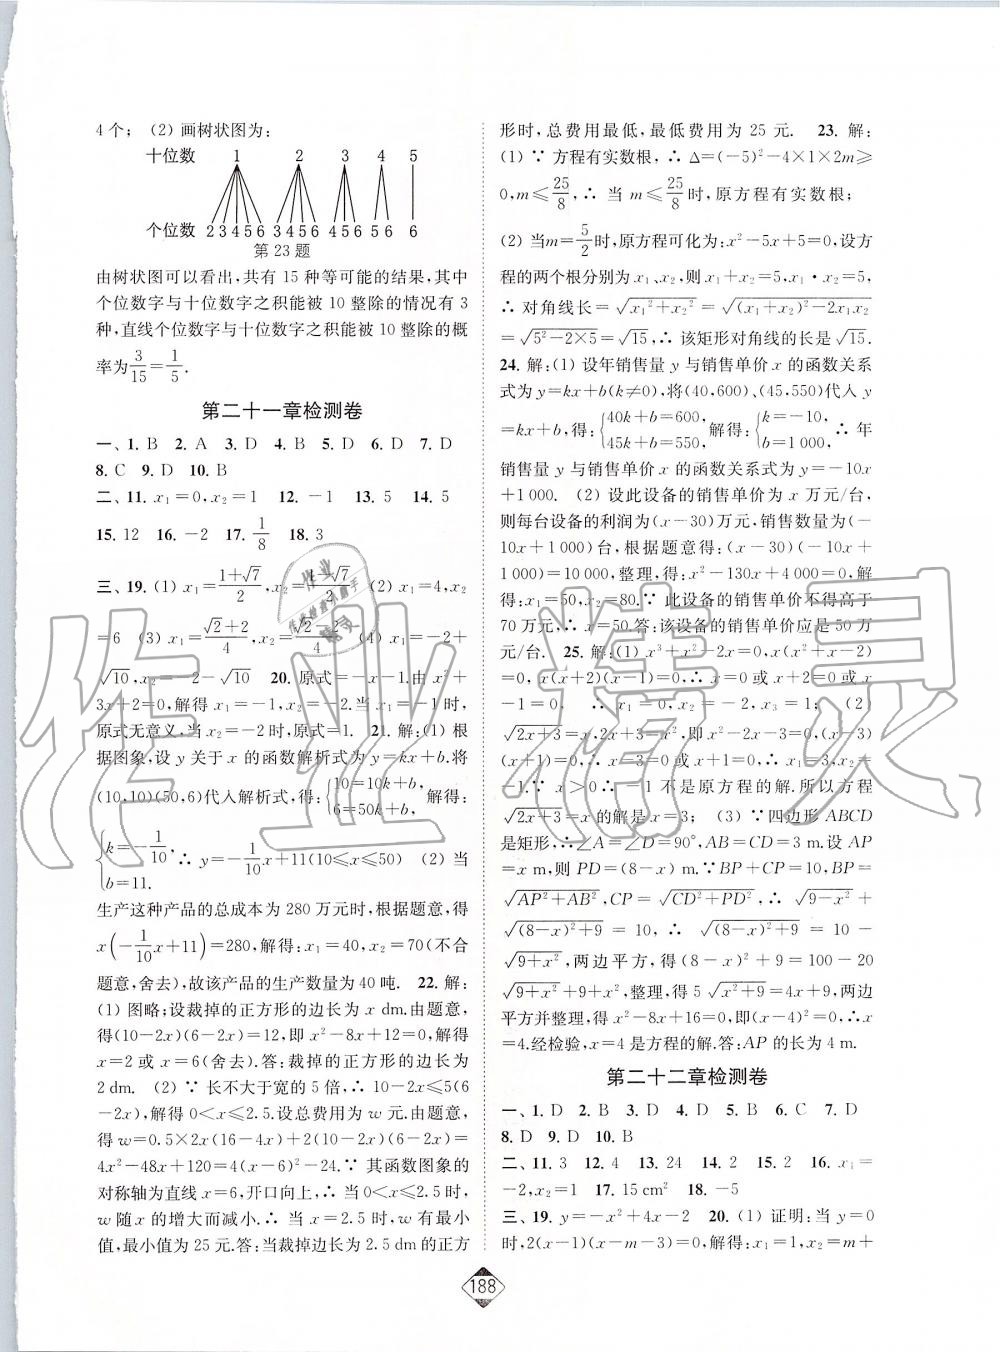 4个；(2) 画树状图为：
十位数 1 2 3 4 5
个位数 2 3 4 5 6 3 4 5 6 4 5 6 5 6 6
第 23 题
由树状图可以看出，共有 15 种等可能的结果，其中
个位数字与十位数字之积能被 10 整除的情况有 3
种，直线个位数字与十位数字之积能被 10 整除的概
率为 3/15 = 1/5.
第二十一章检测卷
一、1. B 2. A 3. D 4. B 5. D 6. D 7. D
8. C 9. D 10. B
二、11. x₁=0, x₂=1 12. −1 13. 5 14. 5
15. 12 16. −2 17. 1/8 18. 3
三、19. (1) x₁=(1+√7)/2, x₂=(1−√7)/2 (2) x₁=4, x₂
=6 (3) x₁=(√2+2)/4, x₂=(√2−2)/4 (4) x₁=−2+
√10, x₂=−2−√10 20. 原式=−x−1. 由 x²+
3x+2=0, 解得 x₁=−1, x₂=−2, 当 x₁=−1 时,
原式无意义, 当 x₂=−2时, 原式=1. 21. 解：(1) 根
据图象, 设 y 关于 x 的函数解析式为 y=kx+b. 将
(10,10)(50,6)代入解析式, 得：{10=10k+b, 6=50k+b, 解得：
{k=−1/10, b=11. ∴ y=−1/10x+11(10≤x≤50) (2) 当
生产这种产品的总成本为 280 万元时, 根据题意, 得
x(−1/10x+11)=280, 解得：x₁=40, x₂=70(不合
题意, 舍去), 故该产品的生产数量为 40 吨. 22. 解：
(1) 图略；设裁掉的正方形的边长为 x dm. 由题意,
得(10−2x)(6−2x)=12, 即 x²−8x+12=0, 解得
x=2 或 x=6(舍去). 答：裁掉的正方形的边长为
2 dm. (2) ∵ 长不大于宽的 5 倍, ∴ 10−2x≤5(6
−2x), 解得 0<x≤2.5. 设总费用为 w 元. 由题意,
得 w=0.5×2x(16−4x)+2(10−2x)(6−2x)=
4x²−48x+120=4(x−6)²−24. ∵ 其函数图象的
对称轴为直线 x=6, 开口向上, ∴ 当 0<x≤2.5 时,
w 随 x 的增大而减小. ∴ 当 x=2.5 时, w 有最小
值, 最小值为 25 元. 答：当裁掉边长为 2.5 dm 的正方
形时, 总费用最低, 最低费用为 25 元. 23. 解：
(1) ∵ 方程有实数根, ∴ Δ=(−5)²−4×1×2m≥
0, m≤25/8, ∴ 当 m≤25/8时, 原方程有实数根；
(2) 当m=5/2时, 原方程可化为：x²−5x+5=0, 设方
程的两个根分别为 x₁、x₂, 则 x₁+x₂=5, x₁·x₂=5,
∴ 对角线长=√(x₁²+x₂²)=√((x₁+x₂)²−2x₁x₂)
=√(5²−2×5)=√15, ∴ 该矩形对角线的长是√15.
24. 解：(1) 设年销售量 y 与销售单价 x 的函数关系
式为 y=kx+b(k≠0), 将(40,600)、(45,550)代入 y
=kx+b, 得：{40k+b=600, 45k+b=550, 解得：{k=−10, b=1 000. ∴ 年
销售量 y 与销售单价 x 的函数关系式为 y=−10x
+1 000. (2) 设此设备的销售单价为 x 万元/台,
则每台设备的利润为(x−30)万元, 销售数量为(−
10x+1 000)台, 根据题意得：(x−30)(−10x+
1 000)=10 000, 整理, 得：x²−130x+4 000=0, 解
得：x₁=50, x₂=80. ∵ 此设备的销售单价不得高于
70万元, ∴ x=50. 答：该设备的销售单价应是 50 万
元/台. 25. 解：(1) x³+x²−2x=0, x(x−1)(x+2)
=0, x(x+2)(x−1)=0. ∴ x=0 或 x+2=0 或 x
−1=0. ∴ x₁=0, x₂=−2, x₃=1； (2)
√(2x+3)=x, 2x+3=x², 即 x²−2x−3=0, (x−3)(x
+1)=0. ∴ x−3=0 或 x+1=0, ∴ x₁=3, x₂=
−1. ∵ x>0 ∴ −1 不是原方程的解. 所以方程
√(2x+3)=x 的解是 x=3； (3) ∵四边形 ABCD
是矩形, ∴∠A=∠D=90°, AB=CD=3 m. 设 AP
=x m, 则 PD=(8−x) m. ∵BP+CP=10, BP=
√(AP²+AB²), CP=√(CD²+PD²), ∴ √(9+x²)+
√((8−x)²+9)=10, ∴ √((8−x)²+9)=10−
√(9+x²), 两边平方, 得：(8−x)²+9=100−20
√(9+x²)+9+x², 整理, 得 5√(x²+9)=4x+9, 两边
平方并整理, 得 x²−8x+16=0, 即(x−4)²=0, ∴x
=4. 经检验, x=4 是方程的解. 答：AP 的长为 4 m.
第二十二章检测卷
一、1. D 2. B 3. D 4. D 5. B 6. C 7. D
8. D 9. D 10. B
二、11. 3 12. 4 13. 24 14. 2 15. 2 16. x₁=
−2, x₂=1 17. 15 cm² 18. −5
三、19. y=−x²+4x−2 20. (1) 证明：当 y=0
时, 2(x−1)(x−m−3)=0, 解得：x₁=1, x₂=m+
188
作业精灵